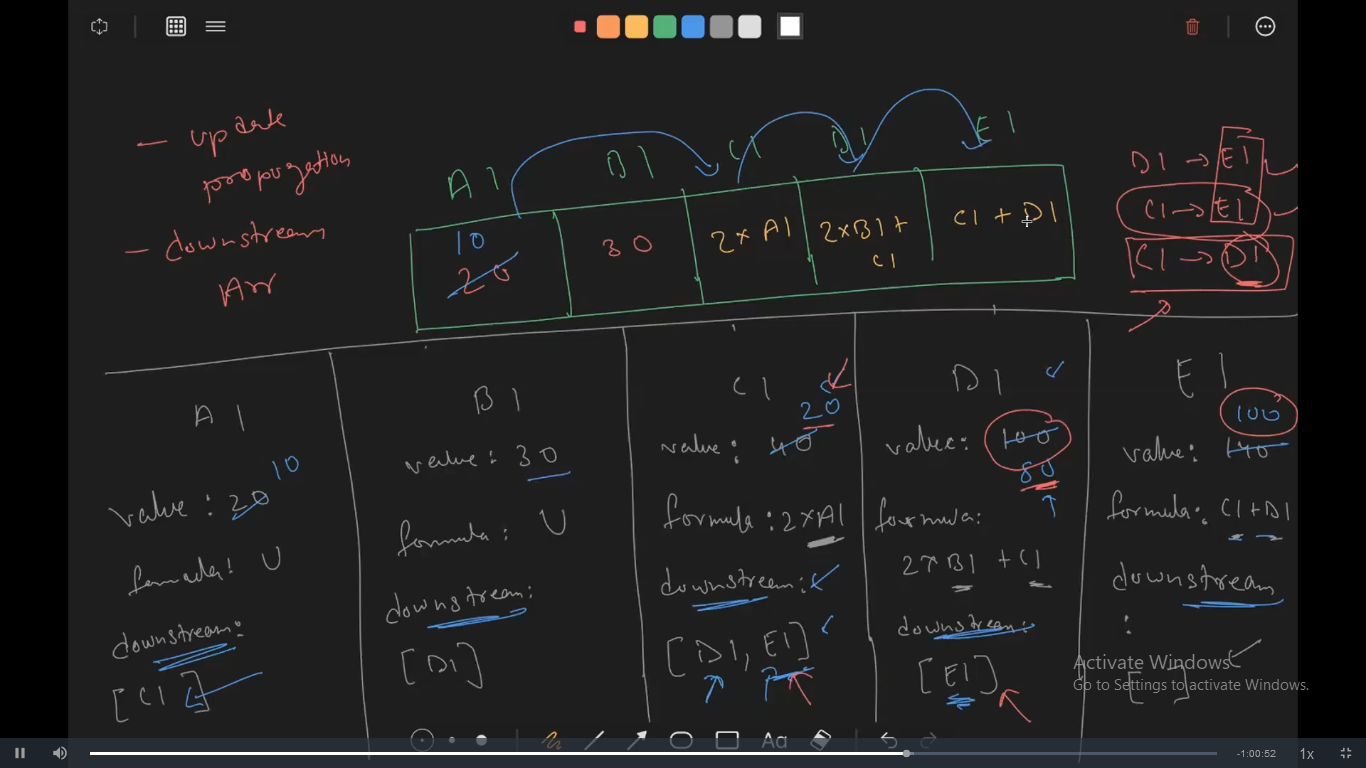 - update
propogation
- downstream
Arr
A1 B1 C1 D1 E1
10
20
30
2 x A1
2xB1 +
C1
C1 + D1
D1 → E1
C1 → E1
C1 → D1
A1
value : 20 10
formula : U
downstream:
[C1]
B1
value : 30
formula : U
downstream:
[D1]
C1
20
value : 40
formula : 2xA1
downstream:
[D1, E1]
D1
value: 100
80
formula:
2xB1 + C1
downstream:
[E1]
E1
100
value: 140
formula: C1+D1
downstream
:
[ ]
Activate Windows
Go to Settings to activate Windows.
Aa
-1:00:52 1x